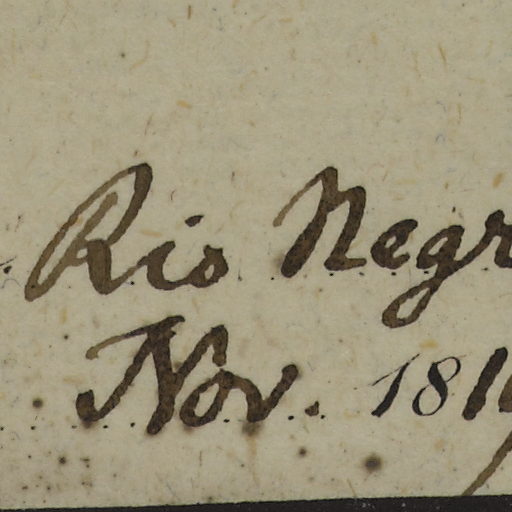 Rio Negr
Nov. 181